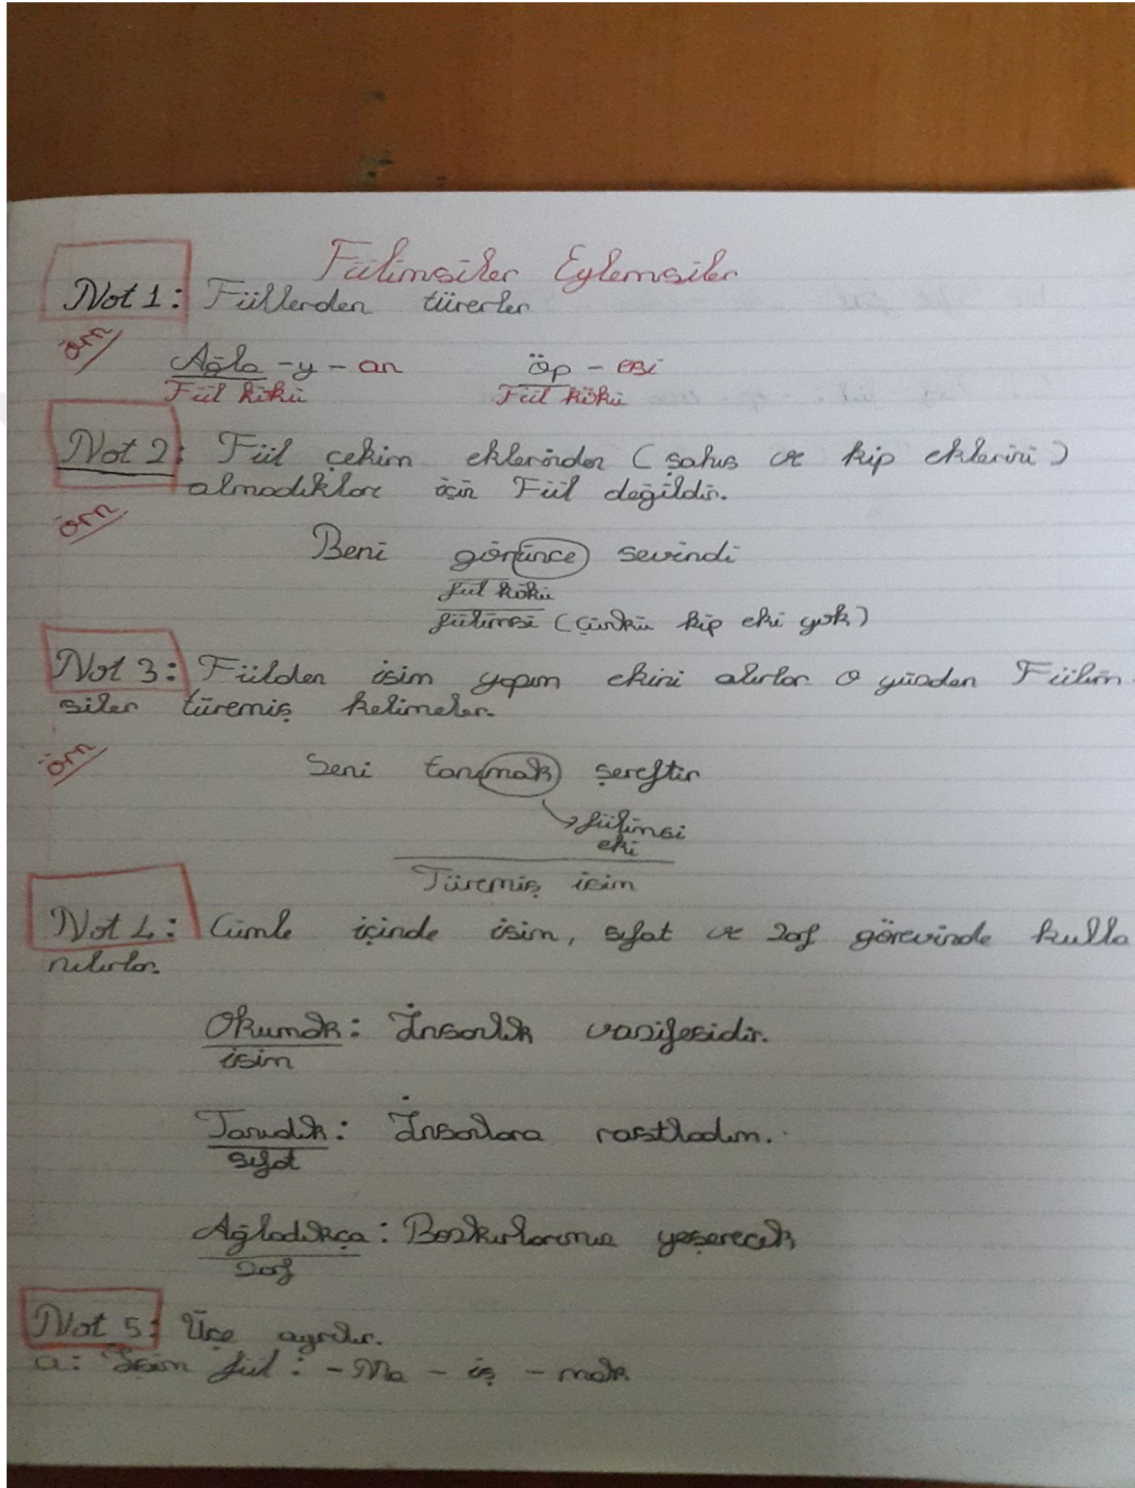 Fiilimsiler Eylemsiler
Not 1: Fiillerden türerler
örn
Ağla - y - an öp - esi
Fiil kökü Fiil kökü
Not 2: Fiil çekim eklerinden (şahıs ve kip eklerini)
almadıkları için Fiil değildir.
örn
Beni görünce sevindi
fiil kökü
fiilimsi (çünkü kip eki yok)
Not 3: Fiilden isim yapım ekini alırlar o yüzden Fiilim-
siler türemiş kelimeler.
örn
Seni tanımak şereftir
fiilimsi
eki
Türemiş isim
Not 4: Cümle içinde isim, sıfat ve zarf görevinde kulla
nılırlar.
Okumak: İnsanlık vazifesidir.
isim
Tanıdık: İnsanlara rastladım.
sıfat
Ağladıkça: Bozkırlarımız yeşerecek
zarf
Not 5: Üçe ayrılır.
a: İsim fiil: - Ma - iş - mak